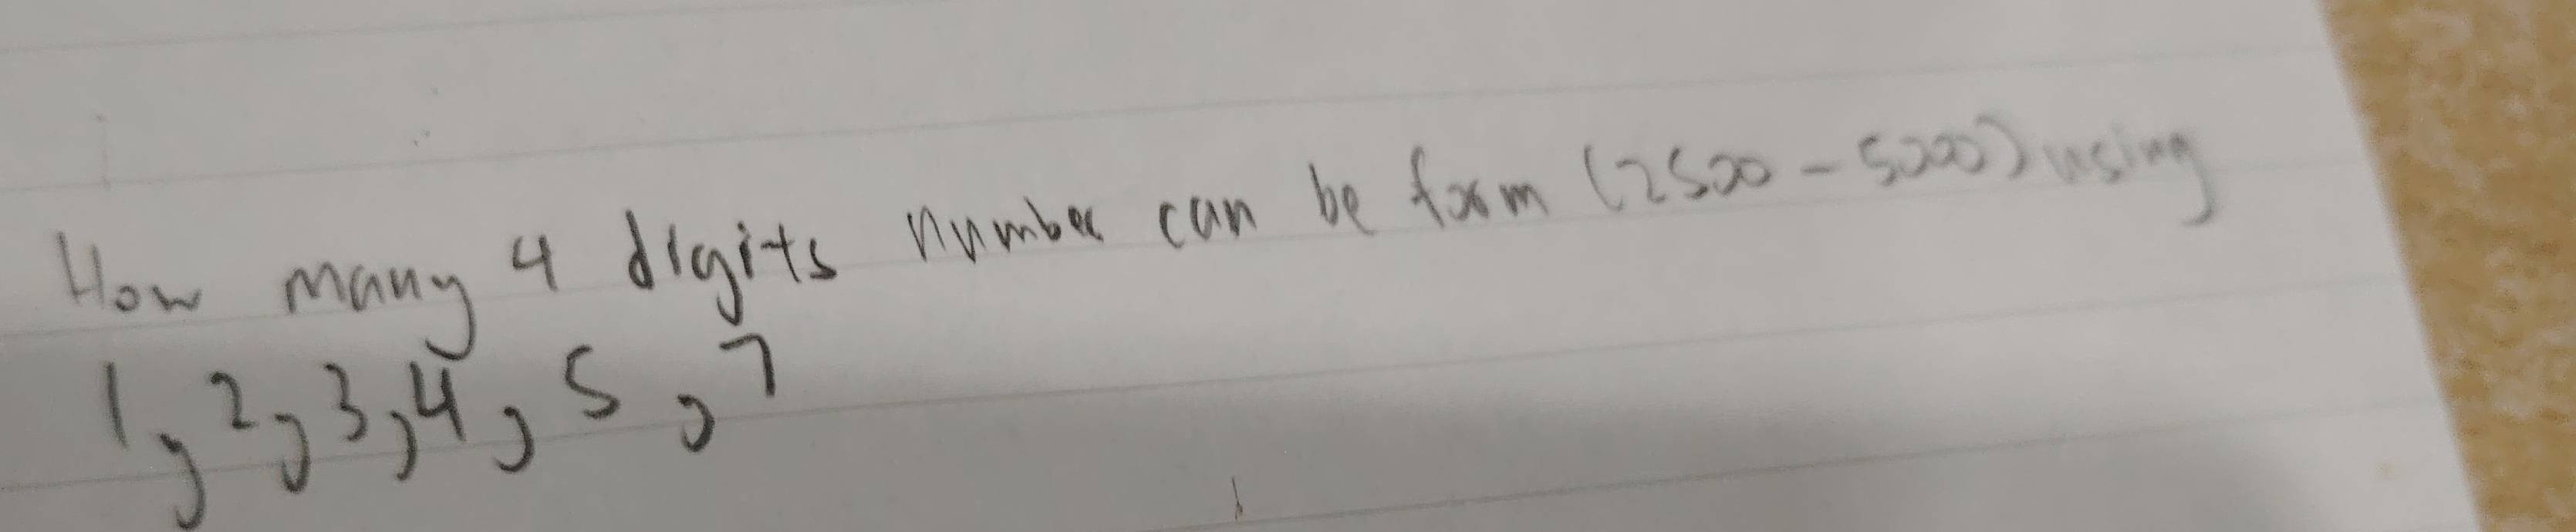 How many 4 digits number can be form (2500 - 5000) using
1, 2, 3, 4, 5, 7